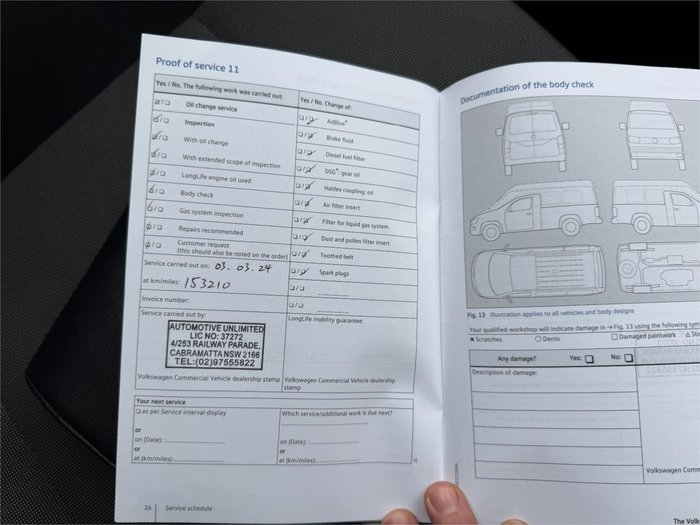 Proof of service 11
Yes / No. The following work was carried out:
Oil change service
Inspection
With oil change
With extended scope of inspection
LongLife engine oil used
Body check
Gas system inspection
Repairs recommended
Customer request
(this should also be noted on the order)
Service carried out on: 03. 03. 24
at km/miles: 153210
Invoice number:
Service carried out by:
AUTOMOTIVE UNLIMITED
LIC NO: 37272
4/253 RAILWAY PARADE,
CABRAMATTA NSW 2166
TEL:(02)97555822
Volkswagen Commercial Vehicle dealership stamp
Yes / No. Change of:
AdBlue®
Brake fluid
Diesel fuel filter
DSG®: gear oil
Haldex coupling: oil
Air filter insert
Filter for liquid gas system
Dust and pollen filter insert
Toothed belt
Spark plugs
LongLife mobility guarantee:
Volkswagen Commercial Vehicle dealership
stamp
Your next service
as per Service interval display
or
on (Date):
or
at (km/miles):
Which service/additional work is due next?
on (Date):
or
at (km/miles):
26 Service schedule
Documentation of the body check
Fig. 13 Illustration applies to all vehicles and body designs
Your qualified workshop will indicate damage in → Fig. 13 using the following
× Scratches ○ Dents □ Damaged paintwork △
Any damage? Yes: No:
Description of damage:
Volkswagen Comm
The Volk